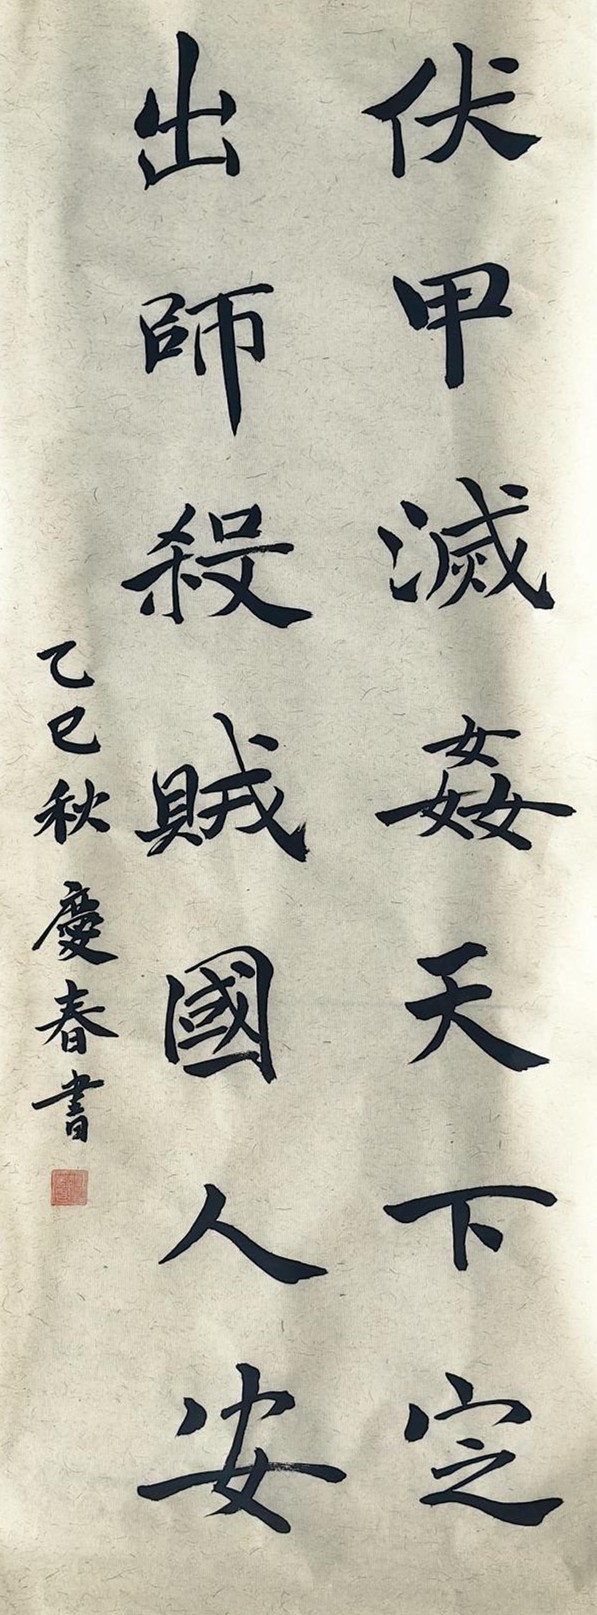 伏甲滅姦天下定
出師殺賊國人安
乙巳秋慶春書